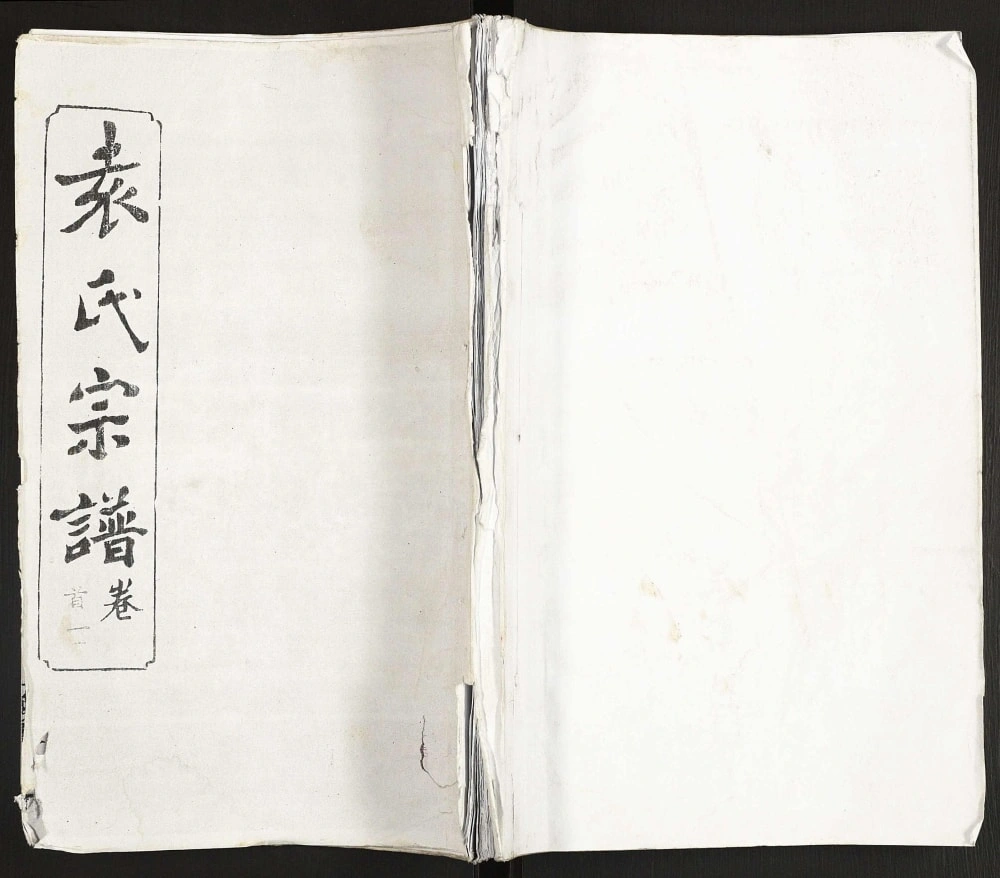 袁氏宗譜卷
首一